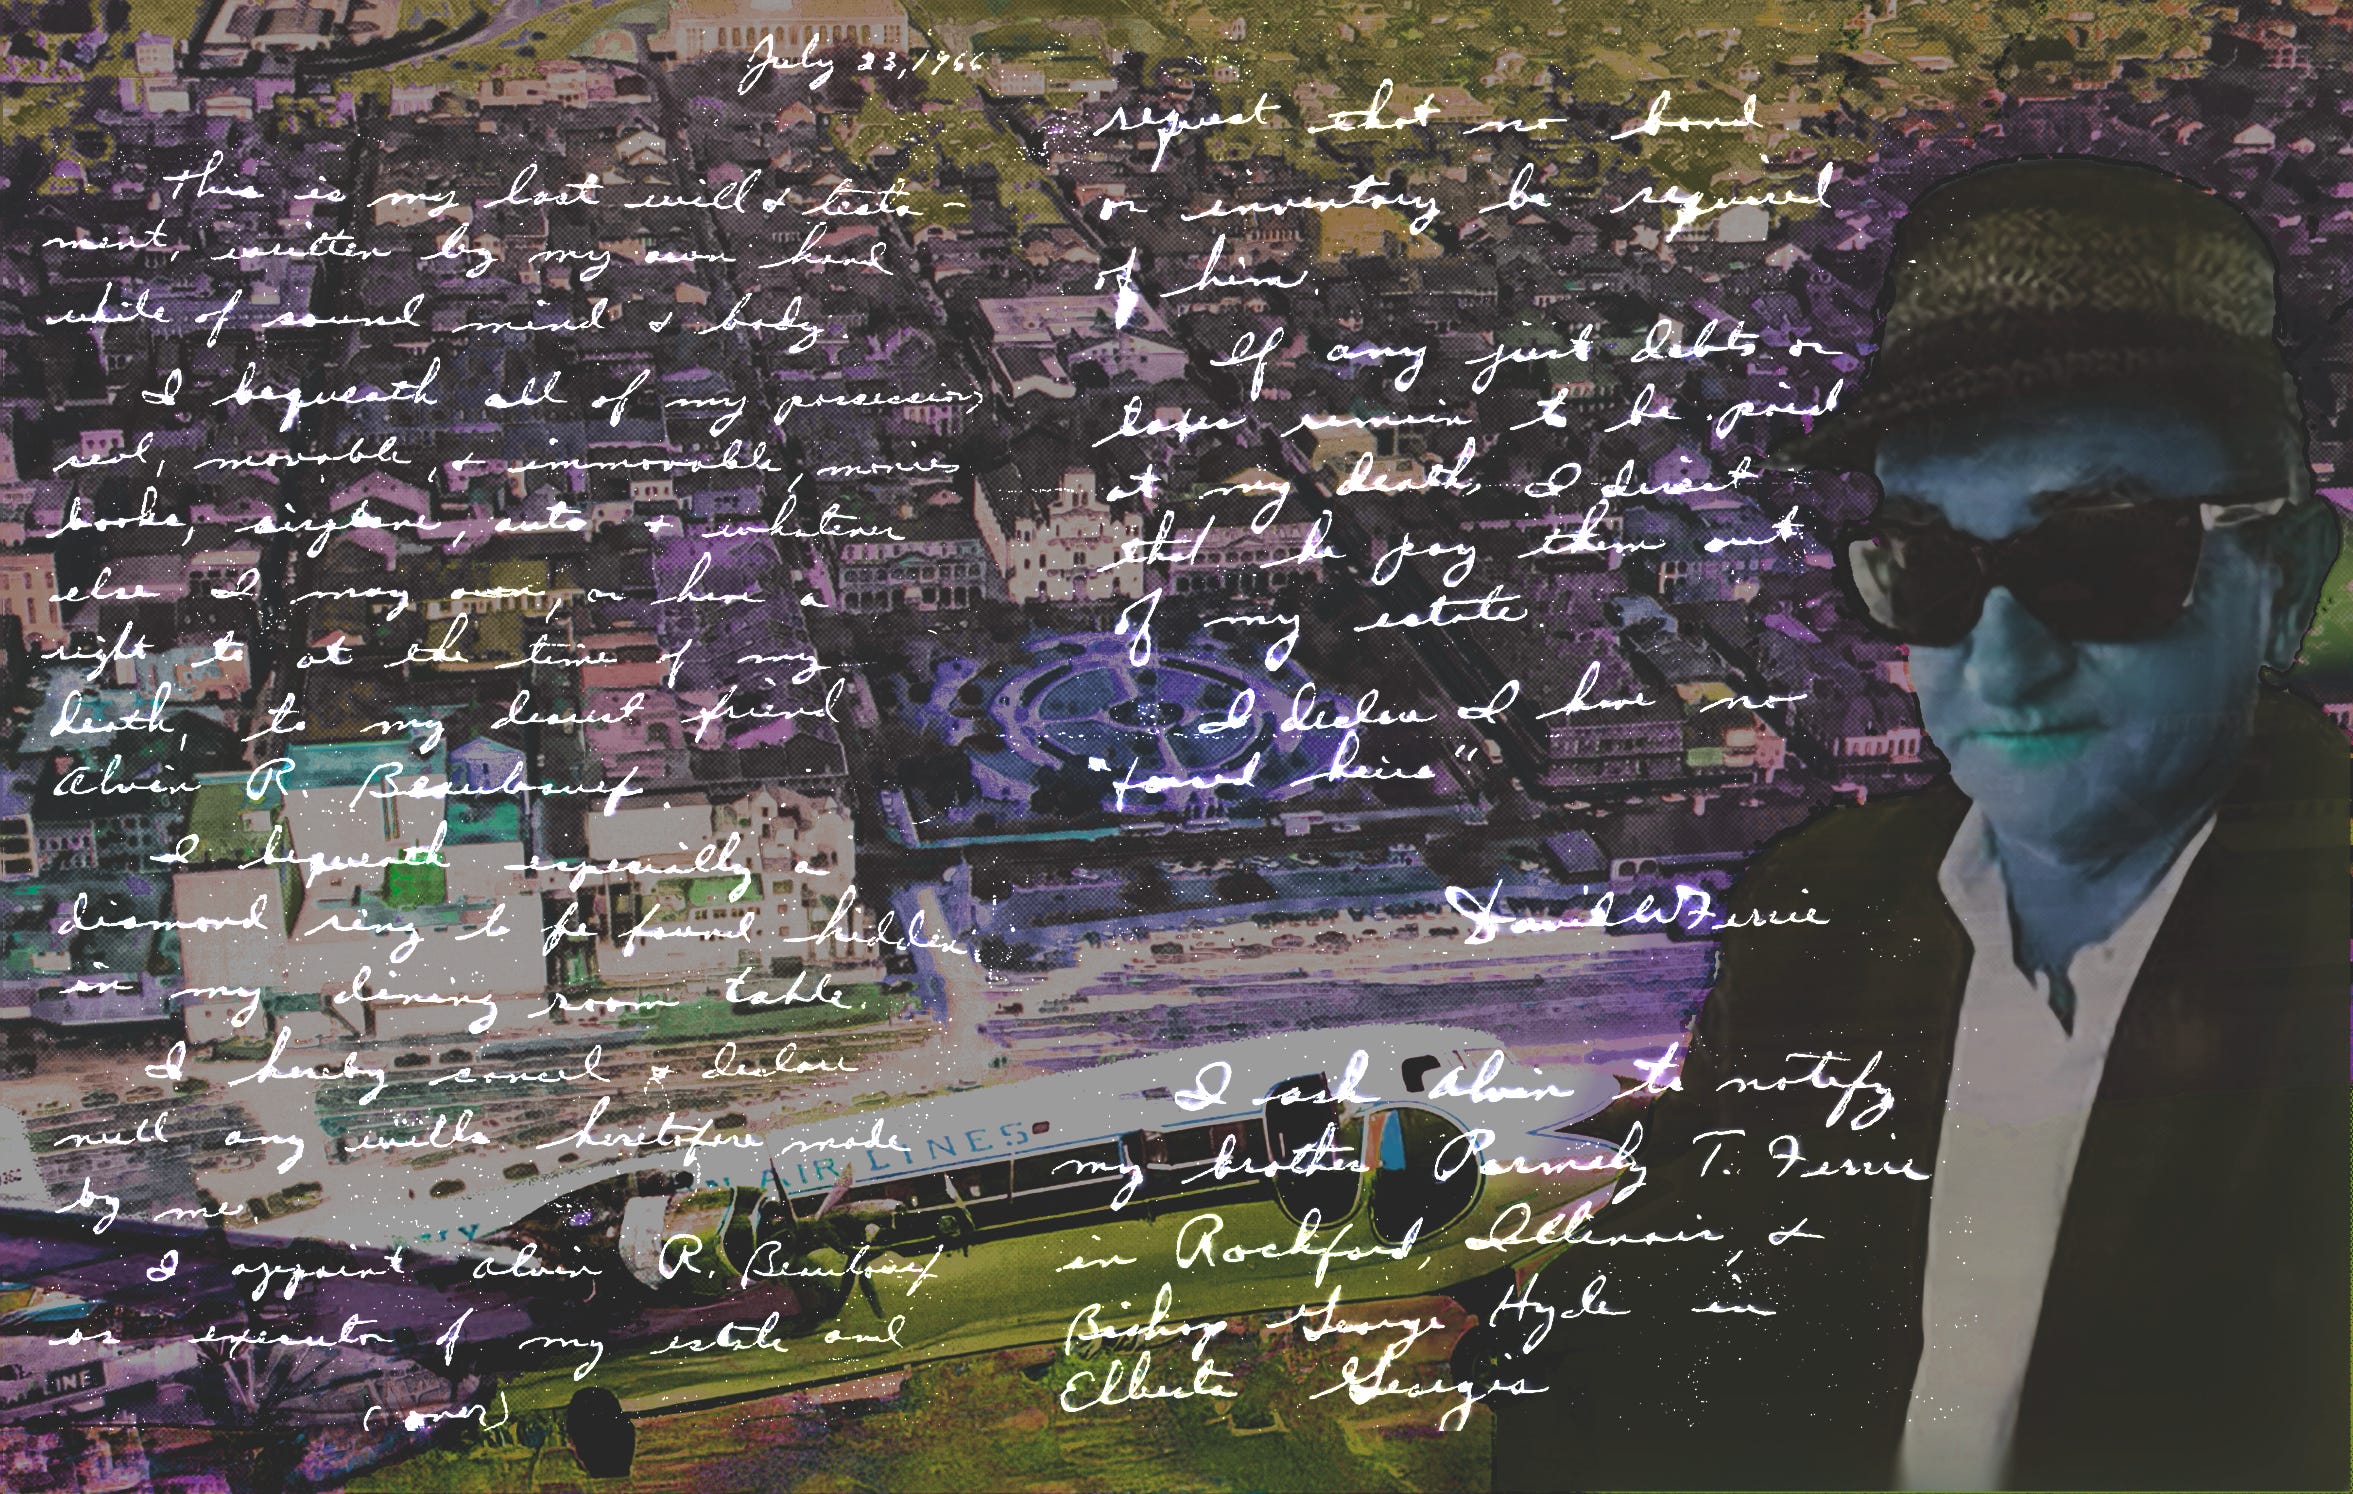 July 23, 1966
This is my last will & testa-
ment, written by my own hand
while of sound mind & body.
I bequeath all of my possessions,
real, movable, & immovable, monies
books, airplane, auto & whatever
else I may own, or have a
right to at the time of my
death, to my dearest friend
Alvin R. Beaubouef.
I bequeath especially a
diamond ring to be found hidden
in my dining room table.
I hereby cancel & declare
null any wills heretofore made
by me.
I appoint Alvin R. Beaubouef
as executor of my estate and
(over)
request that no bond
or inventory be required
of him.
If any just debts or
taxes remain to be paid
at my death, I direct
that he pay them out
of my estate
I declare I have no
"forced heirs"
David W Ferrie
I ask Alvin to notify
my brother Parmely T. Ferrie
in Rockford, Illinois, &
Bishop George Hyde in
Elberta Georgia
AIR LINES
LINE